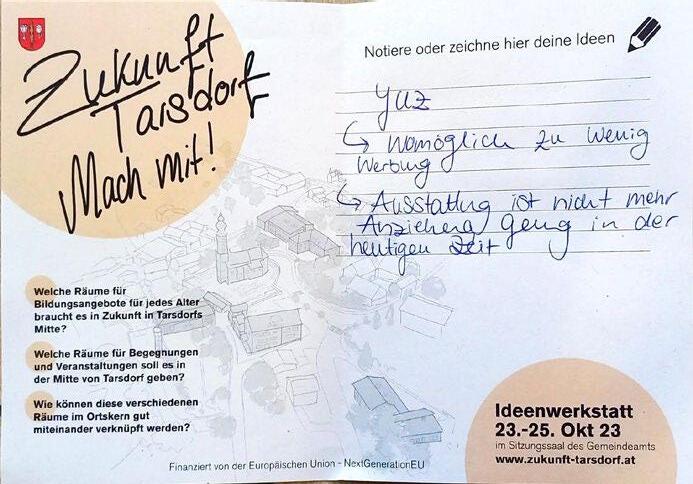 Zukunft
Tarsdorf
Mach mit!
Notiere oder zeichne hier deine Ideen
yuz
↳ Womöglich zu wenig
Werbung
↳ Ausstattung ist nicht mehr
Anziehend genug in der
heutigen Zeit
Welche Räume für
Bildungsangebote für jedes Alter
braucht es in Zukunft in Tarsdorfs
Mitte?
Welche Räume für Begegnungen
und Veranstaltungen soll es in
der Mitte von Tarsdorf geben?
Wie können diese verschiedenen
Räume im Ortskern gut
miteinander verknüpft werden?
Finanziert von der Europäischen Union - NextGenerationEU
Ideenwerkstatt
23.-25. Okt 23
im Sitzungssaal des Gemeindeamts
www.zukunft-tarsdorf.at